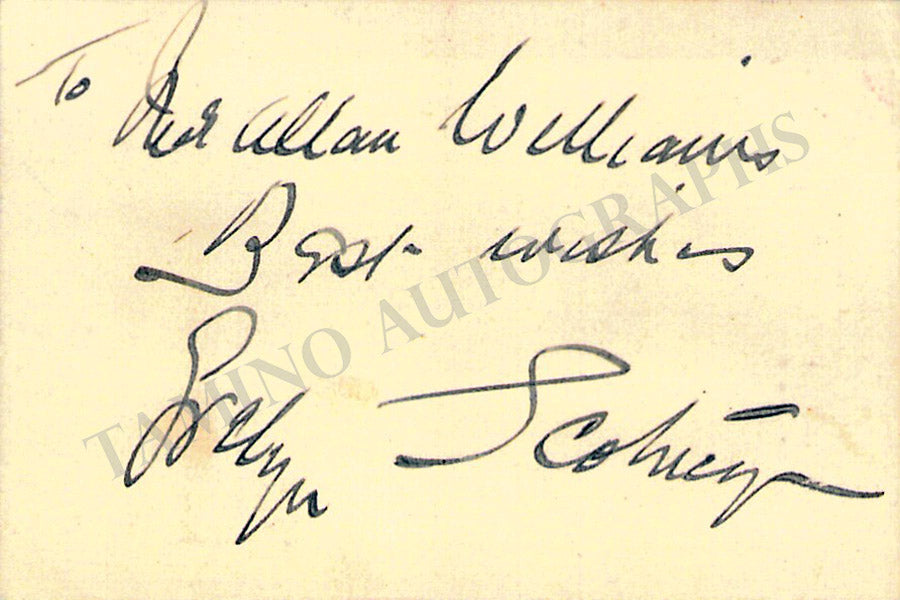 To Mr Allan Williams
Best wishes
Evelyn Scotney
TAMINO AUTOGRAPHS